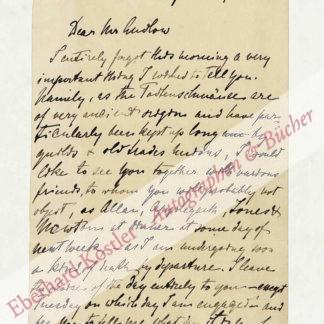 Dear Mr Ludlow
I entirely forgot this morning a very
important thing I wished to tell you.
Namely, as the Todtenschmäuse are
of very ancient origin and have par-
ticularly been kept up long by
guilds & old trades unions, I would
like to see you together with various
friends, to whom you would probably not
object, as Allan, Applegarth, Jones &
Newton at dinner some day of
next week as I am undergoing soon
a kind of death by departure. I leave
the choice of the day entirely to you except
Tuesday on which day I am engaged and
Eberhard Köstler Autographen & Bücher